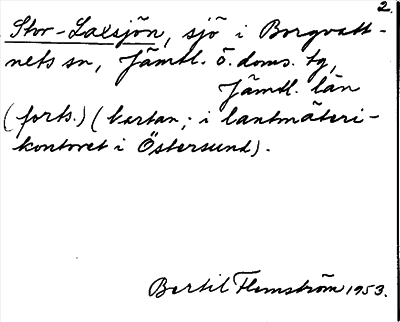 2.
Stor-Laxsjön, sjö i Borgvatt-
nets sn, Jämtl. ö. doms. tg,
Jämtl. län
(forts.) (kartan; i lantmäteri-
kontoret i Östersund).
Bertil Flemström 1953.